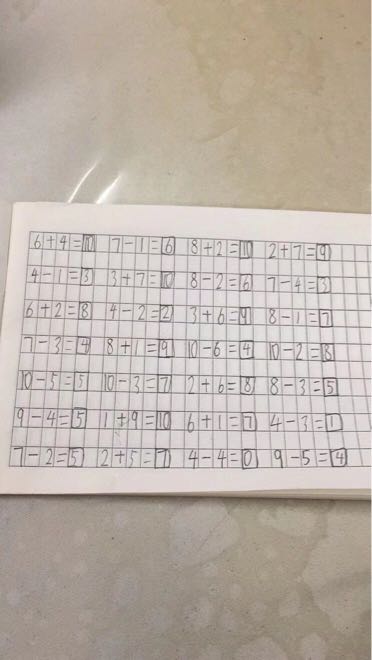 6+4=10 7-1=6 8+2=10 2+7=9
4-1=3 3+7=10 8-2=6 7-4=3
6+2=8 4-2=2 3+6=9 8-1=7
7-3=4 8+1=9 10-6=4 10-2=8
10-5=5 10-3=7 2+6=8 8-3=5
9-4=5 1+9=10 6+1=7 4-3=1
7-2=5 2+5=7 4-4=0 9-5=4